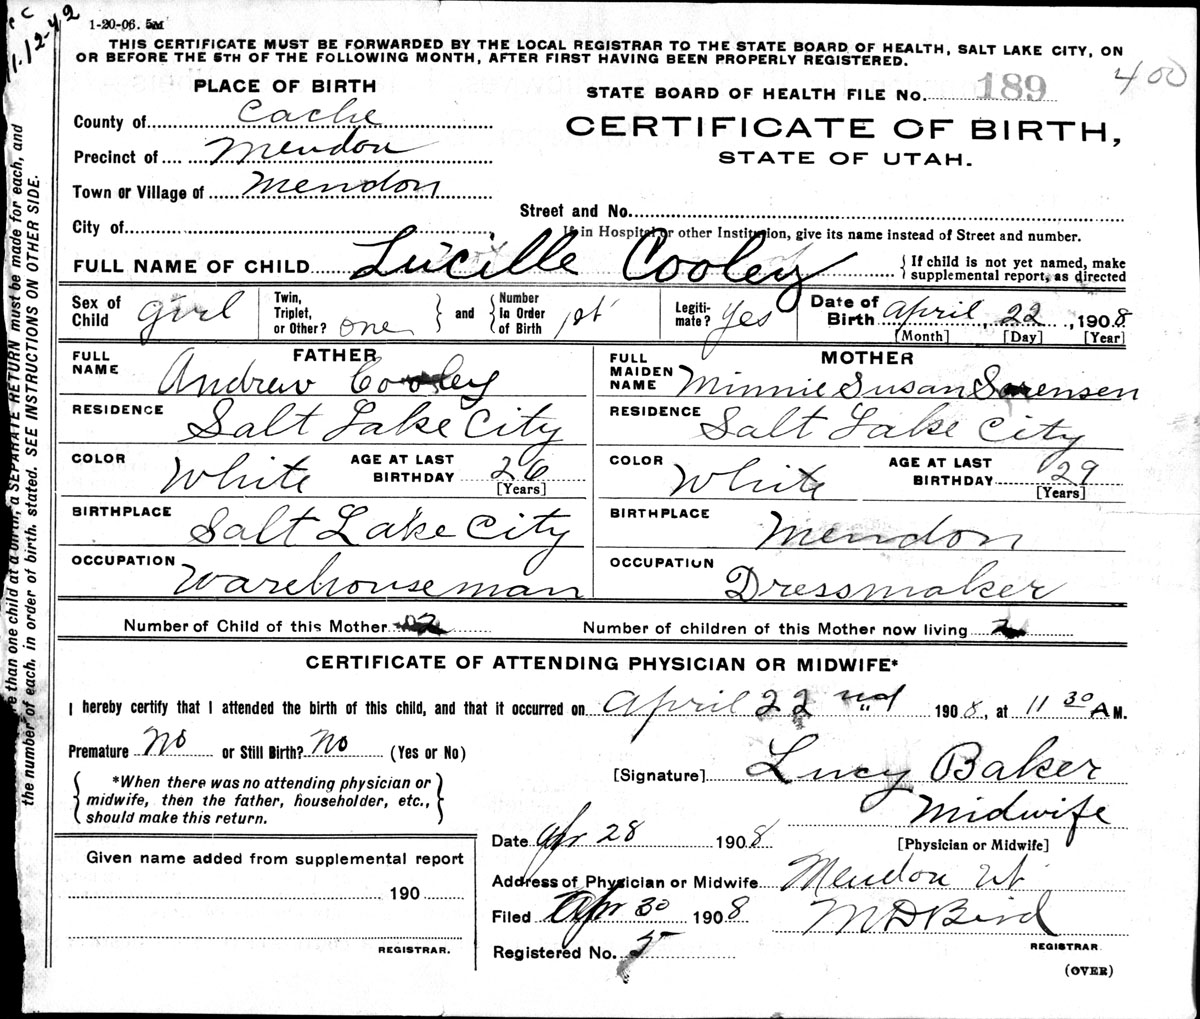 1-20-06. 5M
11-12-42
THIS CERTIFICATE MUST BE FORWARDED BY THE LOCAL REGISTRAR TO THE STATE BOARD OF HEALTH, SALT LAKE CITY, ON
OR BEFORE THE 5TH OF THE FOLLOWING MONTH, AFTER FIRST HAVING BEEN PROPERLY REGISTERED.
400
PLACE OF BIRTH
STATE BOARD OF HEALTH FILE No. 189
County of Cache
CERTIFICATE OF BIRTH,
STATE OF UTAH.
Precinct of Mendon
Town or Village of Mendon
Street and No.
City of
If in Hospital or other Institution, give its name instead of Street and number.
FULL NAME OF CHILD Lucille Cooley
If child is not yet named, make
supplemental report, as directed
Sex of Child girl
Twin, Triplet, or Other? one
and
Number In Order of Birth 1st
Legitimate? Yes
Date of Birth April 22, 1908
[Month] [Day] [Year]
FATHER
FULL NAME Andrew Cooley
RESIDENCE Salt Lake City
COLOR White
AGE AT LAST BIRTHDAY 26
[Years]
BIRTHPLACE Salt Lake City
OCCUPATION Warehouseman
MOTHER
FULL MAIDEN NAME Minnie Susan Sorensen
RESIDENCE Salt Lake City
COLOR White
AGE AT LAST BIRTHDAY 29
[Years]
BIRTHPLACE Mendon
OCCUPATION Dressmaker
Number of Child of this Mother 2
Number of children of this Mother now living 2
CERTIFICATE OF ATTENDING PHYSICIAN OR MIDWIFE*
I hereby certify that I attended the birth of this child, and that it occurred on April 22nd 1908, at 11 30 A M.
Premature No or Still Birth? No (Yes or No)
*When there was no attending physician or
midwife, then the father, householder, etc.,
should make this return.
[Signature] Lucy Baker
Midwife
[Physician or Midwife]
Date Apr 28 1908
Address of Physician or Midwife Mendon Ut
Filed Apr 30 1908
M D Bird
REGISTRAR
Registered No. 5
(OVER)
Given name added from supplemental report
190
REGISTRAR.
than one child at a birth, a SEPARATE RETURN must be made for each, and
the number of each, in order of birth. stated. SEE INSTRUCTIONS ON OTHER SIDE.